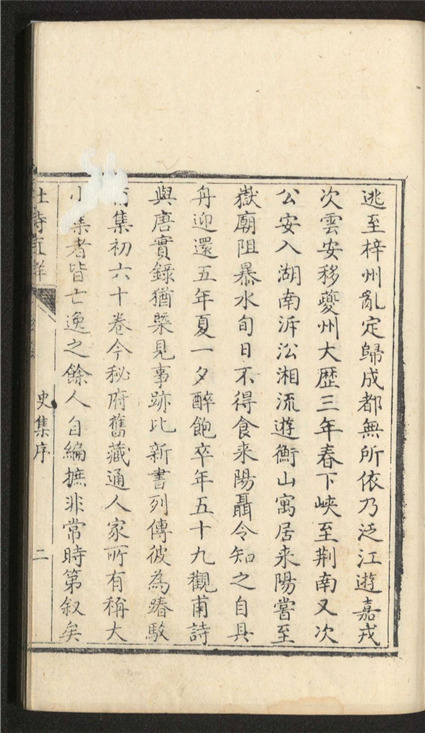 逃至梓州亂定歸成都無所依乃泛江遊嘉戎
次雲安移夔州大歷三年春下峽至荆南又次
公安入湖南泝沿湘流遊衡山寓居耒陽嘗至
嶽廟阻暴水旬日不得食耒陽聶令知之自具
舟迎還五年夏一夕醉飽卒年五十九觀甫詩
與唐實錄猶槩見事跡比新書列傳彼為踳駮
集初六十卷今秘府舊藏通人家所有稱大
小集者皆亡逸之餘人自編摭非常時第叙矣
杜詩
史集序
二